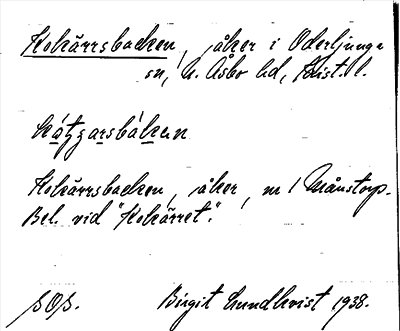 Kokärrsbacken, åker i Oderljunga
sn, N. Åsbo hd, Krist. l.
Kokärrsbacken, åker, nr 1 Månstorp.
Bel. vid "Kokärret".
SOS. Birgit Lundkvist 1938.